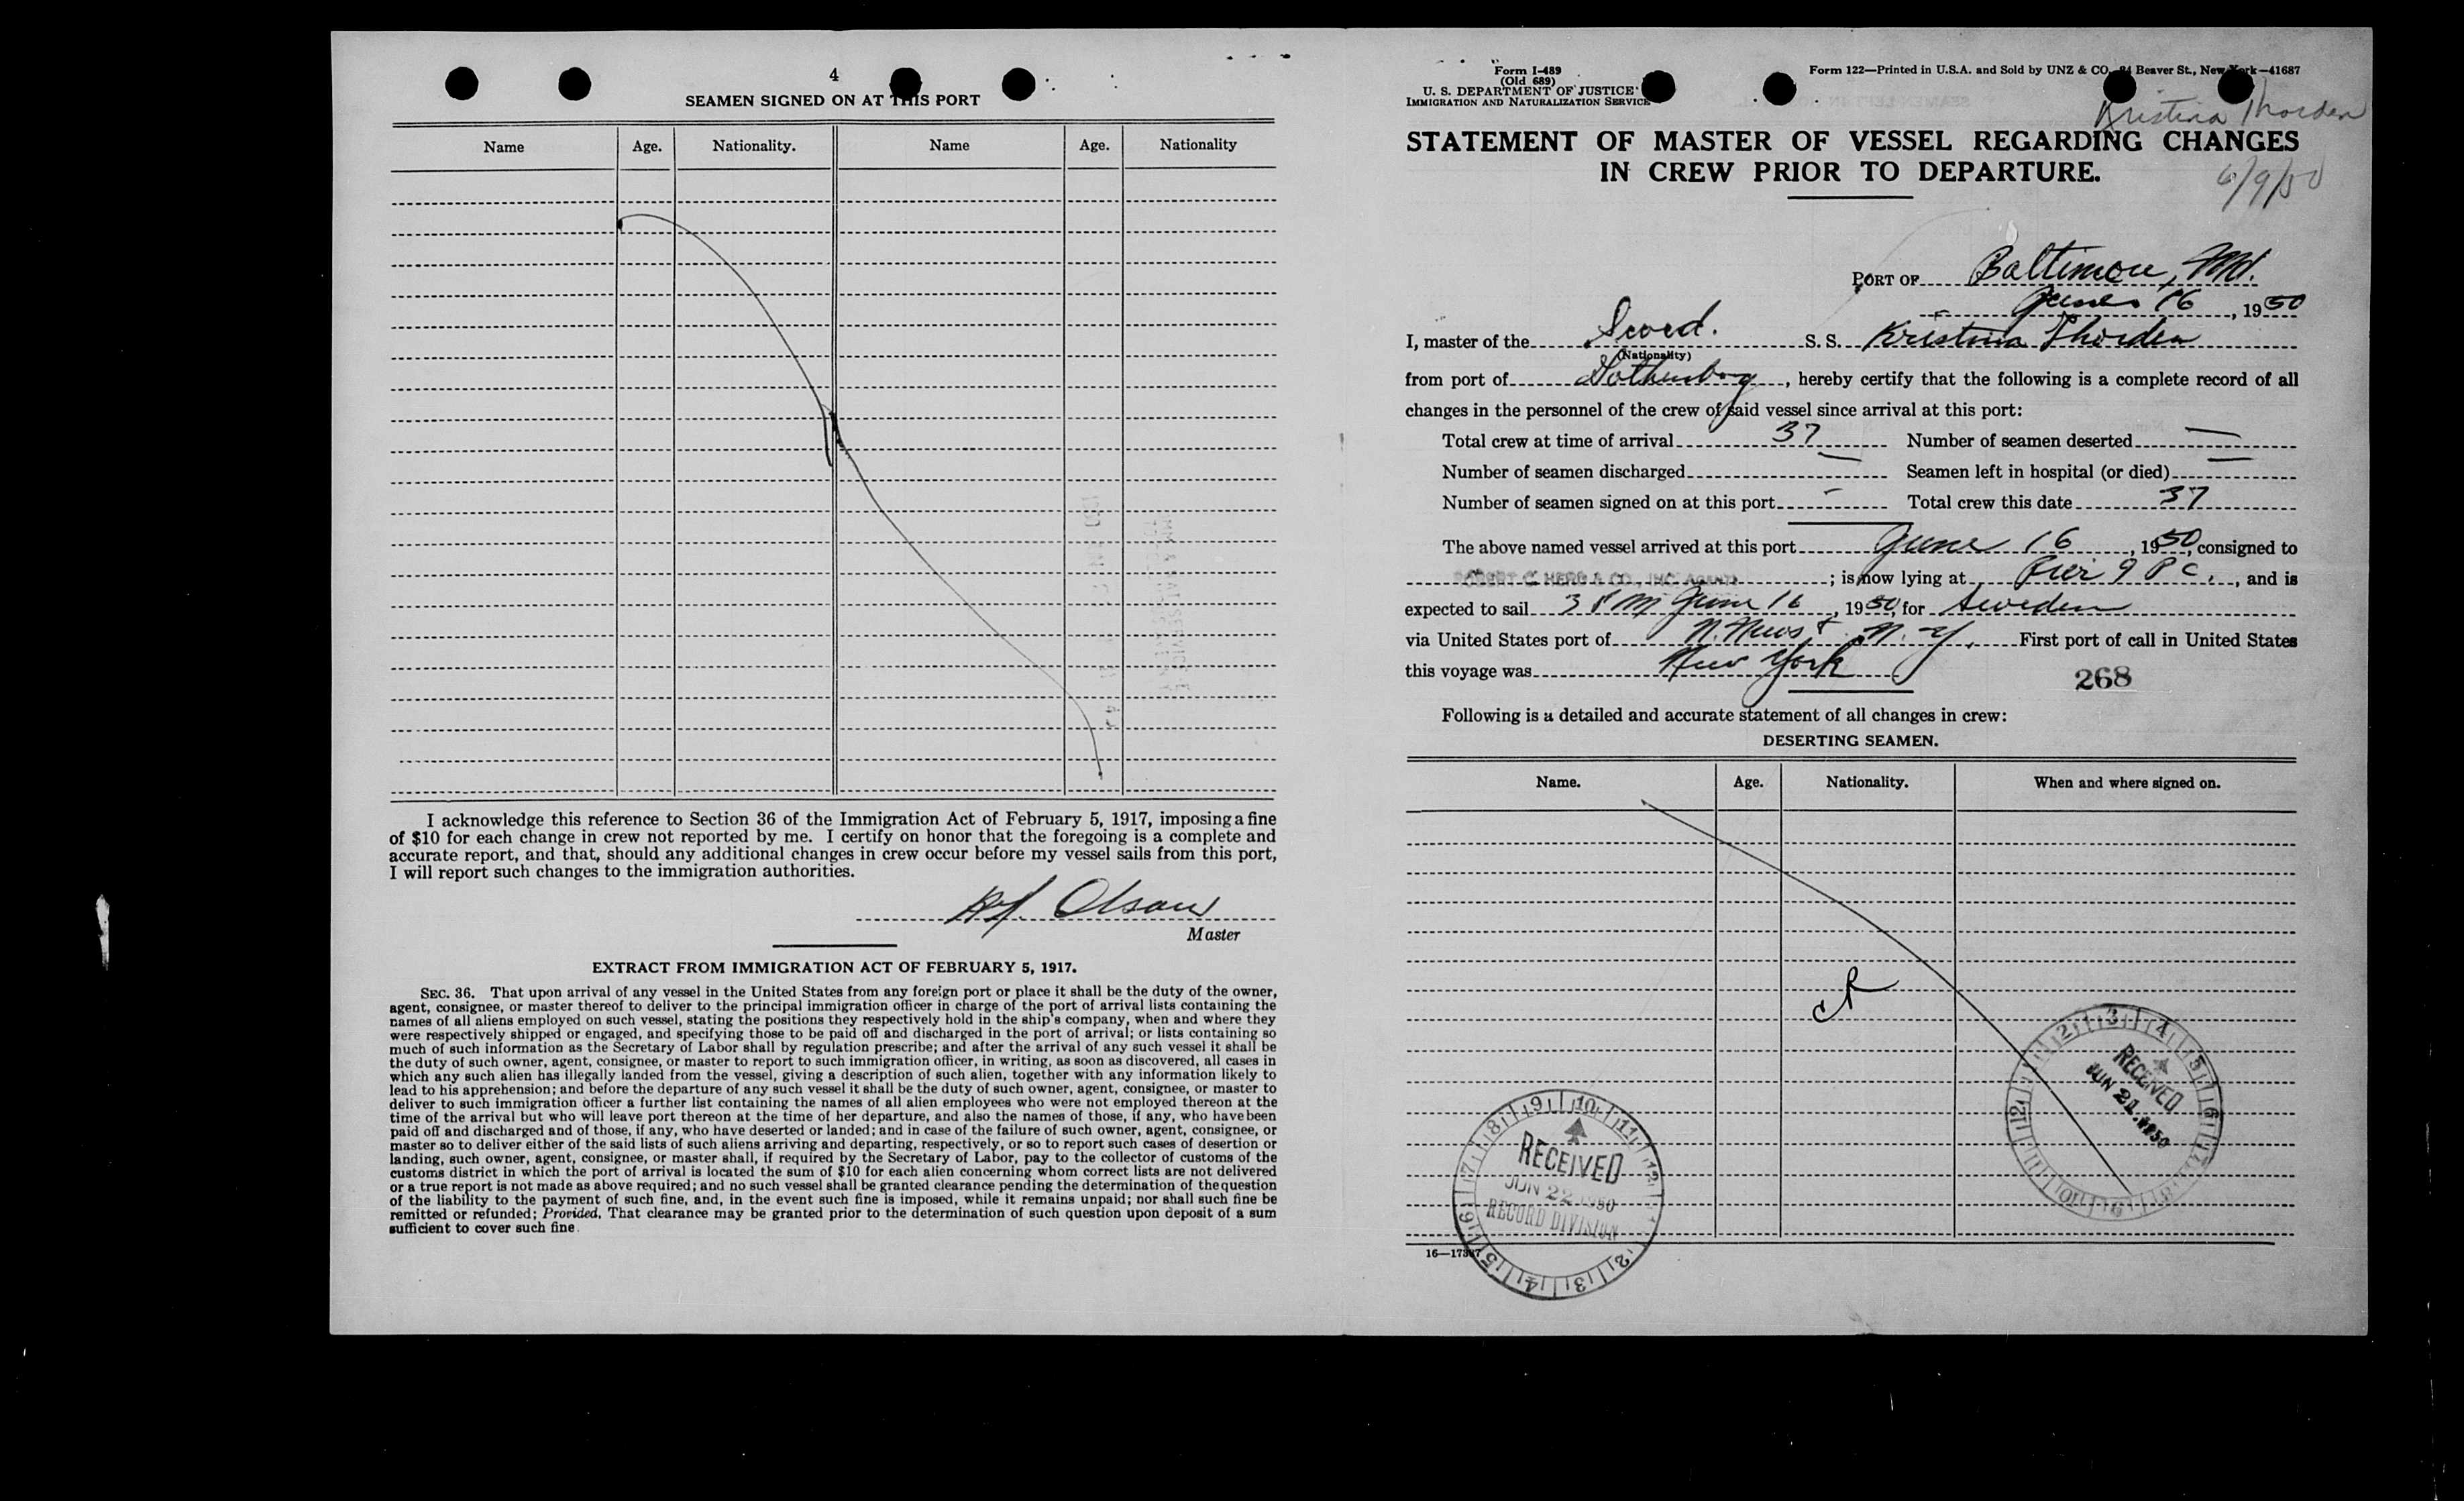 4
SEAMEN SIGNED ON AT THIS PORT
Name Age. Nationality. Name Age. Nationality
I acknowledge this reference to Section 36 of the Immigration Act of February 5, 1917, imposing a fine
of $10 for each change in crew not reported by me. I certify on honor that the foregoing is a complete and
accurate report, and that, should any additional changes in crew occur before my vessel sails from this port,
I will report such changes to the immigration authorities.
Olson
Master
EXTRACT FROM IMMIGRATION ACT OF FEBRUARY 5, 1917.
SEC. 36. That upon arrival of any vessel in the United States from any foreign port or place it shall be the duty of the owner,
agent, consignee, or master thereof to deliver to the principal immigration officer in charge of the port of arrival lists containing the
names of all aliens employed on such vessel, stating the positions they respectively hold in the ship's company, when and where they
were respectively shipped or engaged, and specifying those to be paid off and discharged in the port of arrival; or lists containing so
much of such information as the Secretary of Labor shall by regulation prescribe; and after the arrival of any such vessel it shall be
the duty of such owner, agent, consignee, or master to report to such immigration officer, in writing, as soon as discovered, all cases in
which any such alien has illegally landed from the vessel, giving a description of such alien, together with any information likely to
lead to his apprehension; and before the departure of any such vessel it shall be the duty of such owner, agent, consignee, or master to
deliver to such immigration officer a further list containing the names of all alien employees who were not employed thereon at the
time of the arrival but who will leave port thereon at the time of her departure, and also the names of those, if any, who have been
paid off and discharged and of those, if any, who have deserted or landed; and in case of the failure of such owner, agent, consignee, or
master so to deliver either of the said lists of such aliens arriving and departing, respectively, or so to report such cases of desertion or
landing, such owner, agent, consignee, or master shall, if required by the Secretary of Labor, pay to the collector of customs of the
customs district in which the port of arrival is located the sum of $10 for each alien concerning whom correct lists are not delivered
or a true report is not made as above required; and no such vessel shall be granted clearance pending the determination of the question
of the liability to the payment of such fine, and, in the event such fine is imposed, while it remains unpaid; nor shall such fine be
remitted or refunded; Provided, That clearance may be granted prior to the determination of such question upon deposit of a sum
sufficient to cover such fine.
Form I-489
(Old 689)
U. S. DEPARTMENT OF JUSTICE
IMMIGRATION AND NATURALIZATION SERVICE
Form 122—Printed in U.S.A. and Sold by UNZ & CO., 24 Beaver St., New York—41687
Kristina Thorden
STATEMENT OF MASTER OF VESSEL REGARDING CHANGES
IN CREW PRIOR TO DEPARTURE.
6/9/50
PORT OF Baltimore, Md.
June 16, 1950
I, master of the Swed. S. S. Kristina Thorden
(Nationality)
from port of Gothenborg, hereby certify that the following is a complete record of all
changes in the personnel of the crew of said vessel since arrival at this port:
Total crew at time of arrival 37 Number of seamen deserted —
Number of seamen discharged — Seamen left in hospital (or died) —
Number of seamen signed on at this port - Total crew this date 37
The above named vessel arrived at this port June 16, 1950, consigned to
ROBERT C. HERD & CO., INC. AGENTS; is now lying at Pier 9 P C., and is
expected to sail 3 P M June 16, 1950, for Sweden
via United States port of N. News & N. Y. First port of call in United States
this voyage was New York
268
Following is a detailed and accurate statement of all changes in crew:
DESERTING SEAMEN.
Name. Age. Nationality. When and where signed on.
RECEIVED
JUN 21 1950
RECEIVED
JUN 22 1950
RECORD DIVISION
16—17337